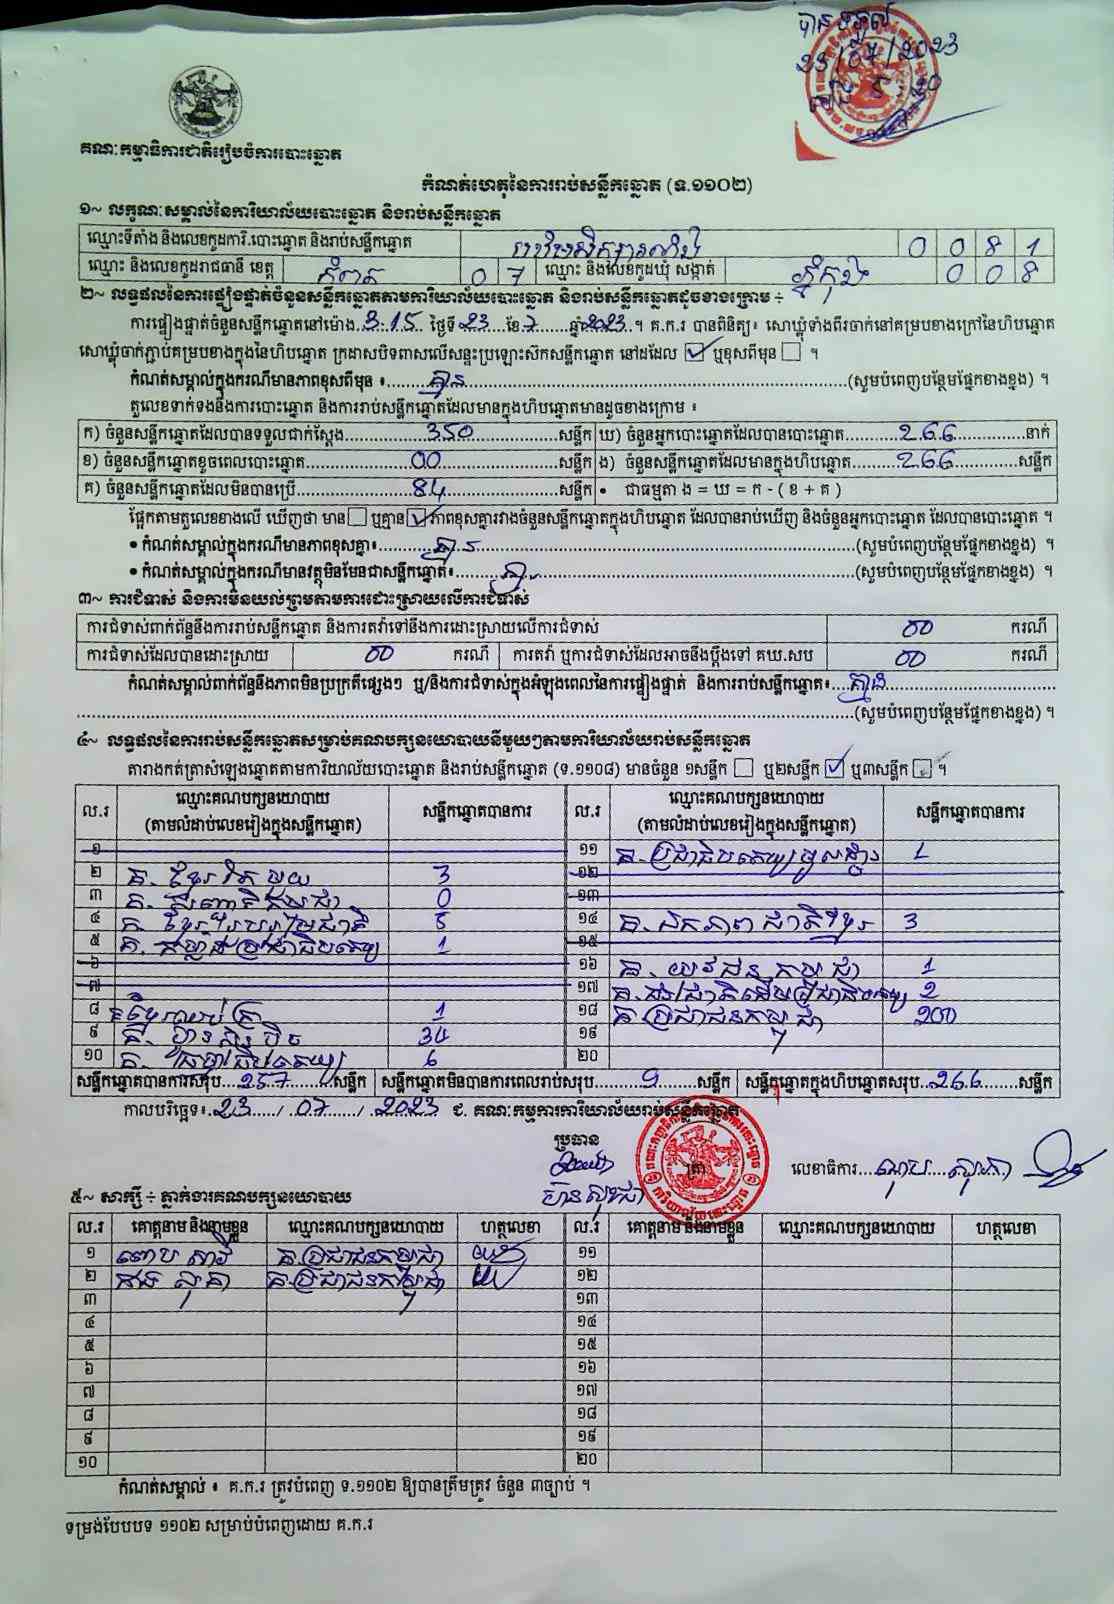 បានទទួល
23/07/2023
ម៉ោង
គណៈកម្មាធិការជាតិរៀបចំការបោះឆ្នោត
កំណត់ហេតុនៃការរាប់សន្លឹកឆ្នោត (ទ.១១០២)
១~ លក្ខណៈសម្គាល់នៃការិយាល័យបោះឆ្នោត និងរាប់សន្លឹកឆ្នោត
ឈ្មោះទីតាំង និងលេខកូដការិ.បោះឆ្នោត និងរាប់សន្លឹកឆ្នោត 0 0 8 1
ឈ្មោះ និងលេខកូដរាជធានី ខេត្ត កំពត 0 7 ឈ្មោះ និងលេខកូដឃុំ សង្កាត់ 0 0 8
២~ លទ្ធផលនៃការផ្ទៀងផ្ទាត់ចំនួនសន្លឹកឆ្នោតតាមការិយាល័យបោះឆ្នោត និងរាប់សន្លឹកឆ្នោតដូចខាងក្រោម ÷
ការផ្ទៀងផ្ទាត់ចំនួនសន្លឹកឆ្នោតនៅម៉ោង 3:15 ថ្ងៃទី 23 ខែ 7 ឆ្នាំ 2023 ។ គ.ក.រ បានពិនិត្យ៖ សោឃ្លុំទាំងពីរចាក់នៅគម្របខាងក្រៅនៃហិបឆ្នោត
សោឃ្លុំចាក់ភ្ជាប់គម្របខាងក្នុងនៃហិបឆ្នោត ក្រដាសបិទពាសលើសន្ទះប្រឡោះស៊កសន្លឹកឆ្នោត នៅដដែល ☑ ឬខុសពីមុន ☐ ។
កំណត់សម្គាល់ក្នុងករណីមានភាពខុសពីមុន ៖ គ្មាន (សូមបំពេញបន្ថែមផ្នែកខាងខ្នង) ។
តួលេខទាក់ទងនឹងការបោះឆ្នោត និងការរាប់សន្លឹកឆ្នោតដែលមានក្នុងហិបឆ្នោតមានដូចខាងក្រោម ៖
ក) ចំនួនសន្លឹកឆ្នោតដែលបានទទួលជាក់ស្តែង 350 សន្លឹក ឃ) ចំនួនអ្នកបោះឆ្នោតដែលបានបោះឆ្នោត 266 នាក់
ខ) ចំនួនសន្លឹកឆ្នោតខូចពេលបោះឆ្នោត 00 សន្លឹក ង) ចំនួនសន្លឹកឆ្នោតដែលមានក្នុងហិបឆ្នោត 266 សន្លឹក
គ) ចំនួនសន្លឹកឆ្នោតដែលមិនបានប្រើ 84 សន្លឹក • ជាធម្មតា ង = ឃ = ក - ( ខ + គ )
ផ្អែកតាមតួលេខខាងលើ ឃើញថា មាន ☐ ឬគ្មាន ☑ ភាពខុសគ្នារវាងចំនួនសន្លឹកឆ្នោតក្នុងហិបឆ្នោត ដែលបានរាប់ឃើញ និងចំនួនអ្នកបោះឆ្នោត ដែលបានបោះឆ្នោត ។
• កំណត់សម្គាល់ក្នុងករណីមានភាពខុសគ្នា៖ គ្មាន (សូមបំពេញបន្ថែមផ្នែកខាងខ្នង) ។
• កំណត់សម្គាល់ក្នុងករណីមានវត្ថុមិនមែនជាសន្លឹកឆ្នោត៖ (សូមបំពេញបន្ថែមផ្នែកខាងខ្នង) ។
៣~ ការជំទាស់ និងការមិនយល់ព្រមតាមការដោះស្រាយលើការជំទាស់
ការជំទាស់ពាក់ព័ន្ធនឹងការរាប់សន្លឹកឆ្នោត និងការតវ៉ាទៅនឹងការដោះស្រាយលើការជំទាស់ 00 ករណី
ការជំទាស់ដែលបានដោះស្រាយ 00 ករណី ការតវ៉ា ឬការជំទាស់ដែលអាចនឹងប្តឹងទៅ គឃ.សប 00 ករណី
កំណត់សម្គាល់ពាក់ព័ន្ធនឹងភាពមិនប្រក្រតីផ្សេងៗ ឬ/និងការជំទាស់ក្នុងអំឡុងពេលនៃការផ្ទៀងផ្ទាត់ និងការរាប់សន្លឹកឆ្នោត៖ គ្មាន
(សូមបំពេញបន្ថែមផ្នែកខាងខ្នង) ។
៤~ លទ្ធផលនៃការរាប់សន្លឹកឆ្នោតសម្រាប់គណបក្សនយោបាយនីមួយៗតាមការិយាល័យរាប់សន្លឹកឆ្នោត
តារាងកត់ត្រាសំឡេងឆ្នោតតាមការិយាល័យបោះឆ្នោត និងរាប់សន្លឹកឆ្នោត (ទ.១១០៨) មានចំនួន ១សន្លឹក ☐ ឬ២សន្លឹក ☑ ឬ៣សន្លឹក ☐ ។
ល.រ ឈ្មោះគណបក្សនយោបាយ (តាមលំដាប់លេខរៀងក្នុងសន្លឹកឆ្នោត) សន្លឹកឆ្នោតបានការ ល.រ ឈ្មោះគណបក្សនយោបាយ (តាមលំដាប់លេខរៀងក្នុងសន្លឹកឆ្នោត) សន្លឹកឆ្នោតបានការ
១ ១១ គ.ប្រជាធិបតេយ្យមូលដ្ឋាន 1
២ គ. ខ្មែររួបរួម 3 ១២
៣ 0 ១៣
៤ គ. ខ្មែរ 5 ១៤ គ.ឯកភាពជាតិខ្មែរ 3
៥ គ. កម្លាំងប្រជាធិបតេយ្យ 1 ១៥
៦ ១៦ គ. យុវជនកម្ពុជា 1
៧ ១៧ 2
៨ 1 ១៨ គ.ប្រជាជនកម្ពុជា 200
៩ គ. ហ៊្វុនស៊ិនប៉ិច 34 ១៩
១០ 6 ២០
សន្លឹកឆ្នោតបានការសរុប 257 សន្លឹក សន្លឹកឆ្នោតមិនបានការពេលរាប់សរុប 9 សន្លឹក សន្លឹកឆ្នោតក្នុងហិបឆ្នោតសរុប 266 សន្លឹក
កាលបរិច្ឆេទ៖ 23 / 07 / 2023 ជ. គណៈកម្មការការិយាល័យរាប់សន្លឹកឆ្នោត
ប្រធាន
ត្រា លេខាធិការ
៥~ សាក្សី ÷ ភ្នាក់ងារគណបក្សនយោបាយ
ល.រ គោត្តនាម និងនាមខ្លួន ឈ្មោះគណបក្សនយោបាយ ហត្ថលេខា ល.រ គោត្តនាម និងនាមខ្លួន ឈ្មោះគណបក្សនយោបាយ ហត្ថលេខា
១ គ.ប្រជាជនកម្ពុជា ១១
២ គ.ប្រជាជនកម្ពុជា ១២
៣ ១៣
៤ ១៤
៥ ១៥
៦ ១៦
៧ ១៧
៨ ១៨
៩ ១៩
១០ ២០
កំណត់សម្គាល់ ៖ គ.ក.រ ត្រូវបំពេញ ទ.១១០២ ឱ្យបានត្រឹមត្រូវ ចំនួន ៣ច្បាប់ ។
ទម្រង់បែបបទ ១១០២ សម្រាប់បំពេញដោយ គ.ក.រ